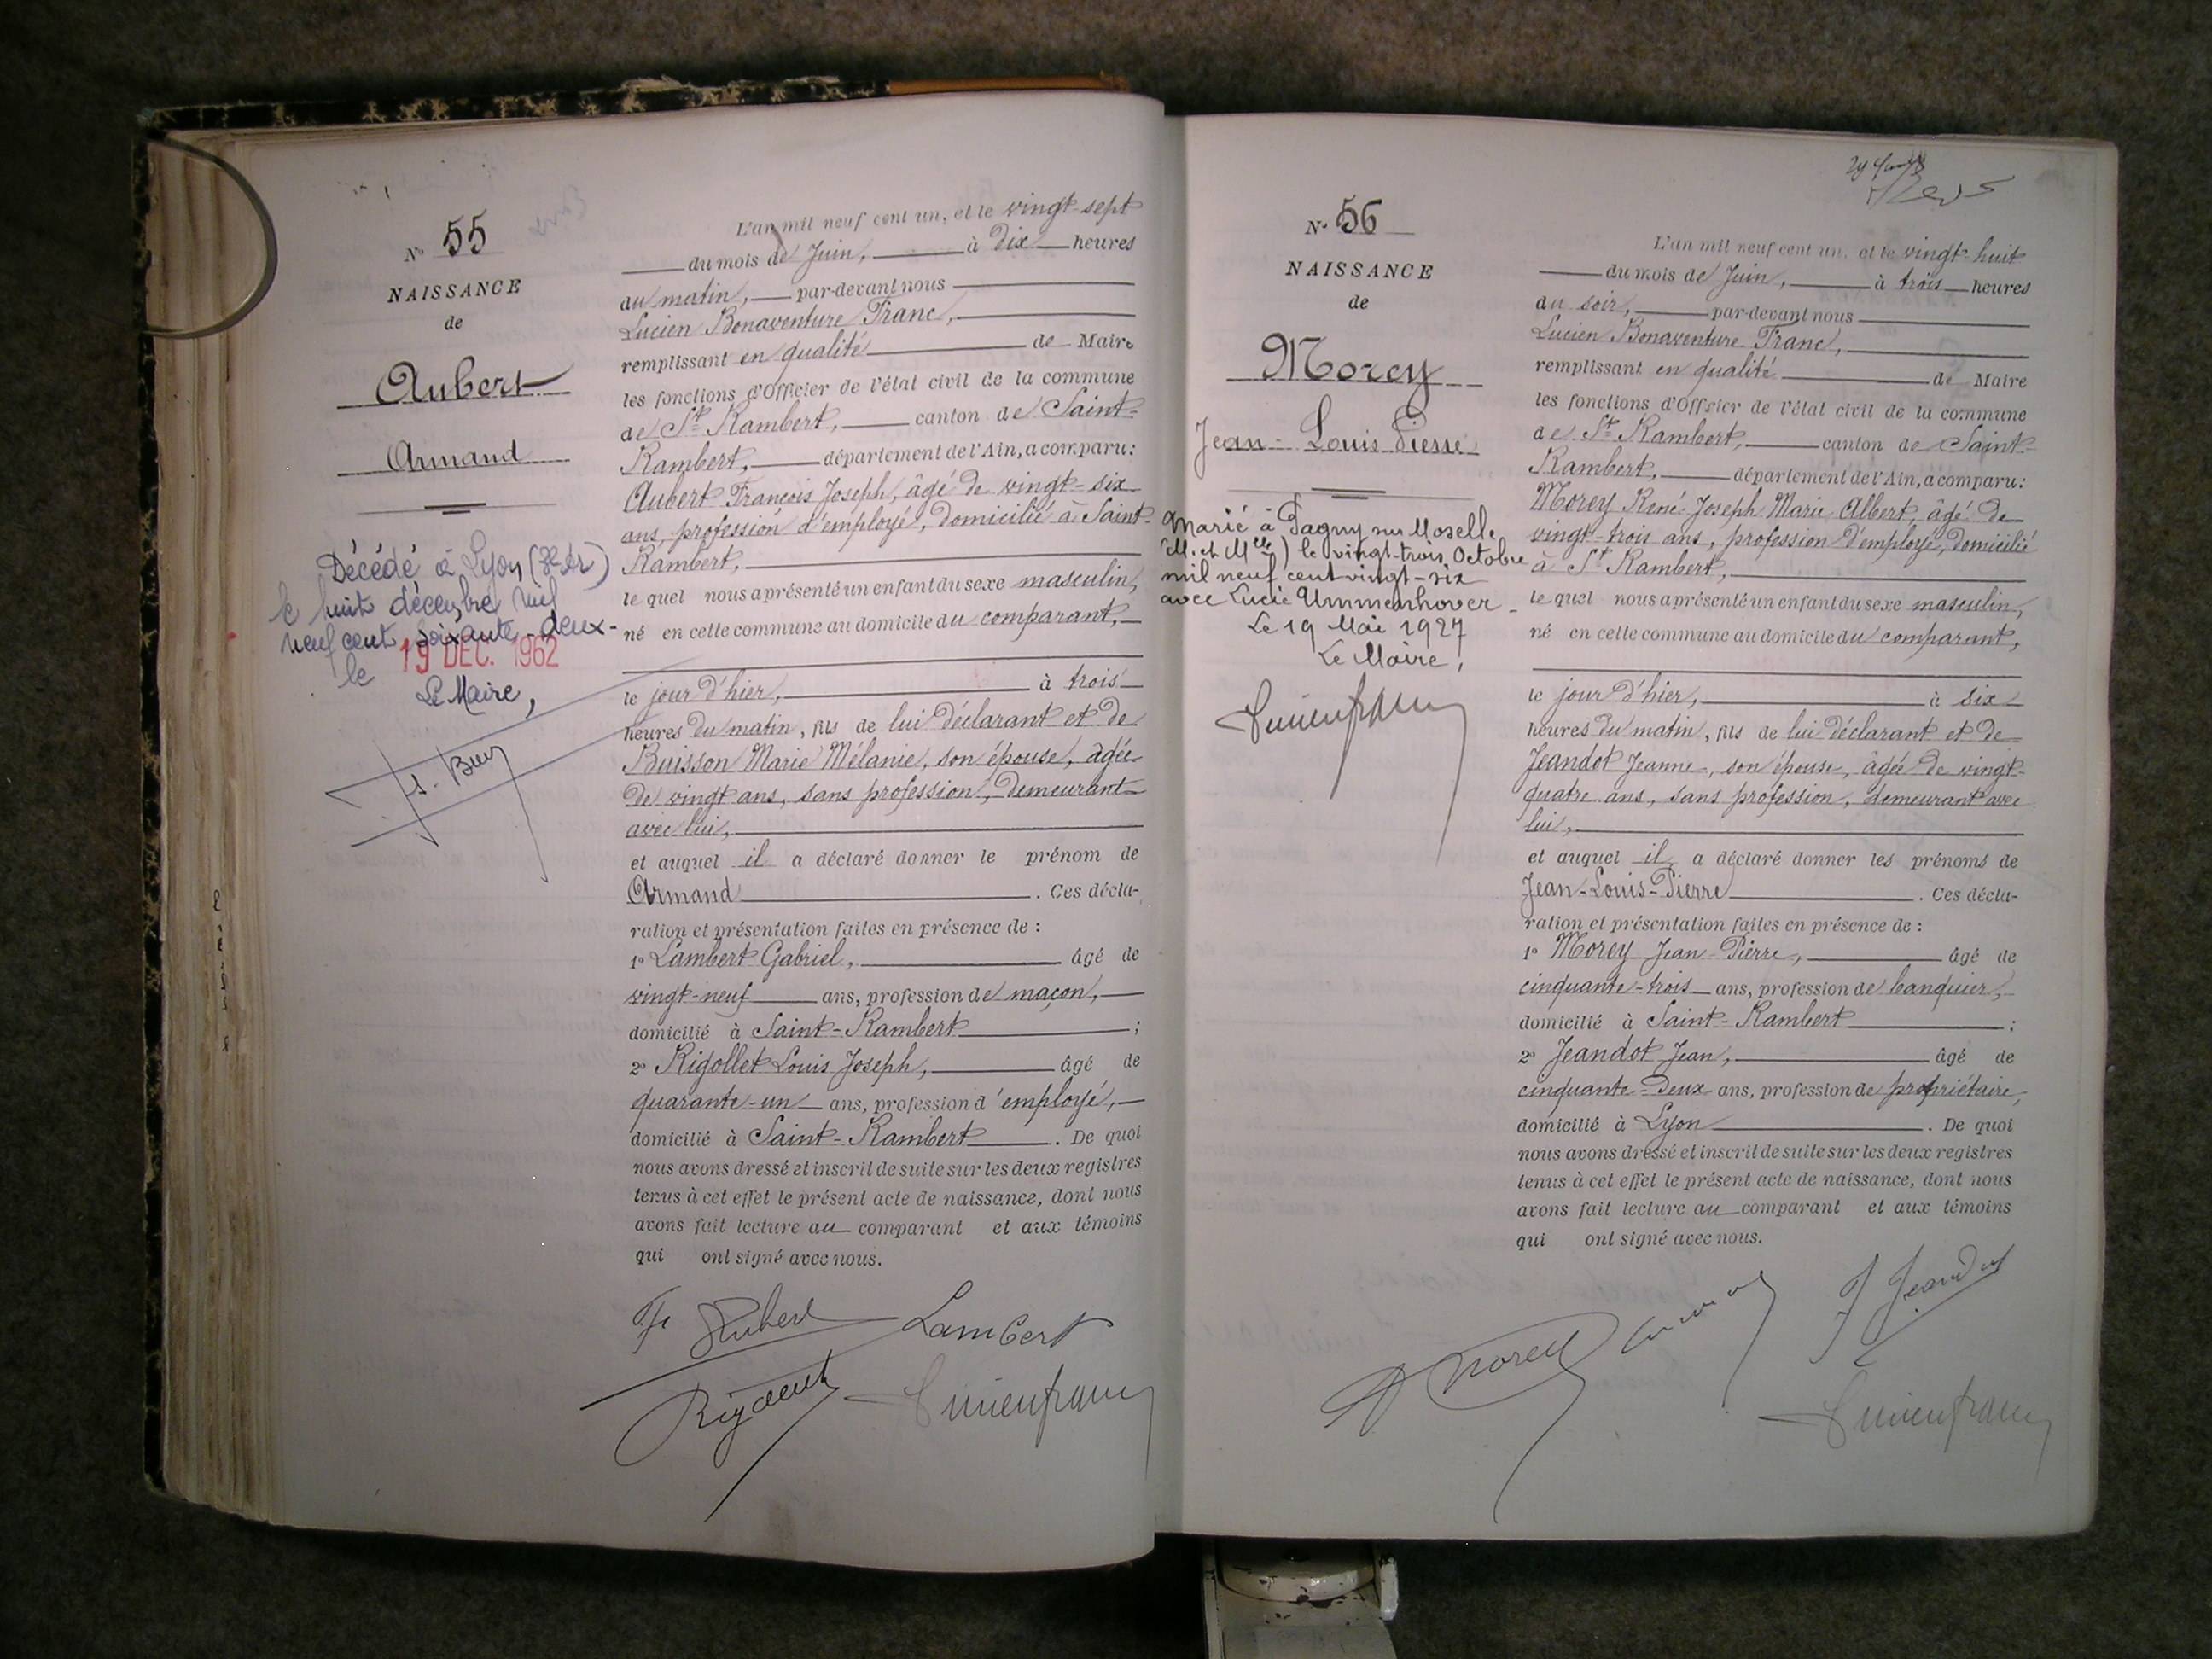 N° 55
NAISSANCE
de
Aubert
Armand
Décédé à Lyon (3e Ar)
le huit décembre mil
neuf cent soixante-deux-
le 19 DEC. 1962
Le Maire,
L'an mil neuf cent un, et le vingt-sept
du mois de Juin, à dix heures
du matin, par-devant nous
Lucien Bonaventure Franc,
remplissant en qualité de Maire
les fonctions d'Officier de l'état civil de la commune
de St Rambert, canton de Saint-
Rambert, département de l'Ain, a comparu:
Aubert François Joseph, âgé de vingt-six
ans, profession d'employé, domicilié à Saint-
Rambert,
le quel nous a présenté un enfant du sexe masculin,
né en cette commune au domicile du comparant,
le jour d'hier, à trois
heures du matin, fils de lui déclarant et de
Buisson Marie Mélanie, son épouse, âgée
de vingt ans, sans profession, demeurant
avec lui,
et auquel il a déclaré donner le prénom de
Armand. Ces décla-
ration et présentation faites en présence de :
1° Lambert Gabriel, âgé de
vingt-neuf ans, profession de maçon,
domicilié à Saint-Rambert ;
2° Rigollet Louis Joseph, âgé de
quarante-un ans, profession d'employé,
domicilié à Saint-Rambert. De quoi
nous avons dressé et inscrit de suite sur les deux registres
tenus à cet effet le présent acte de naissance, dont nous
avons fait lecture au comparant et aux témoins
qui ont signé avec nous.
Aubert Lambert
N° 56
NAISSANCE
de
Morey
Jean-Louis Pierre
Marié à Pagny sur Moselle
(M. et Mlle) le vingt-trois Octobre
mil neuf cent vingt-six
avec Lucie Ummenhover
Le 19 Mai 1927
Le Maire,
Lucienfranc
L'an mil neuf cent un, et le vingt-huit
du mois de Juin, à trois heures
du soir, par-devant nous
Lucien Bonaventure Franc,
remplissant en qualité de Maire
les fonctions d'Officier de l'état civil de la commune
de St Rambert, canton de Saint-
Rambert, département de l'Ain, a comparu:
Morey René Joseph Marie Albert, âgé de
vingt-trois ans, profession d'employé, domicilié
à St Rambert,
le quel nous a présenté un enfant du sexe masculin,
né en cette commune au domicile du comparant,
le jour d'hier, à six
heures du matin, fils de lui déclarant et de
Jeandot Jeanne, son épouse, âgée de vingt-
quatre ans, sans profession, demeurant avec
lui,
et auquel il a déclaré donner les prénoms de
Jean-Louis-Pierre. Ces décla-
ration et présentation faites en présence de :
1° Morey Jean-Pierre, âgé de
cinquante-trois ans, profession de banquier,
domicilié à Saint-Rambert ;
2° Jeandot Jean, âgé de
cinquante-deux ans, profession de propriétaire,
domicilié à Lyon. De quoi
nous avons dressé et inscrit de suite sur les deux registres
tenus à cet effet le présent acte de naissance, dont nous
avons fait lecture au comparant et aux témoins
qui ont signé avec nous.
J Jeandot
Morey
Lucienfranc